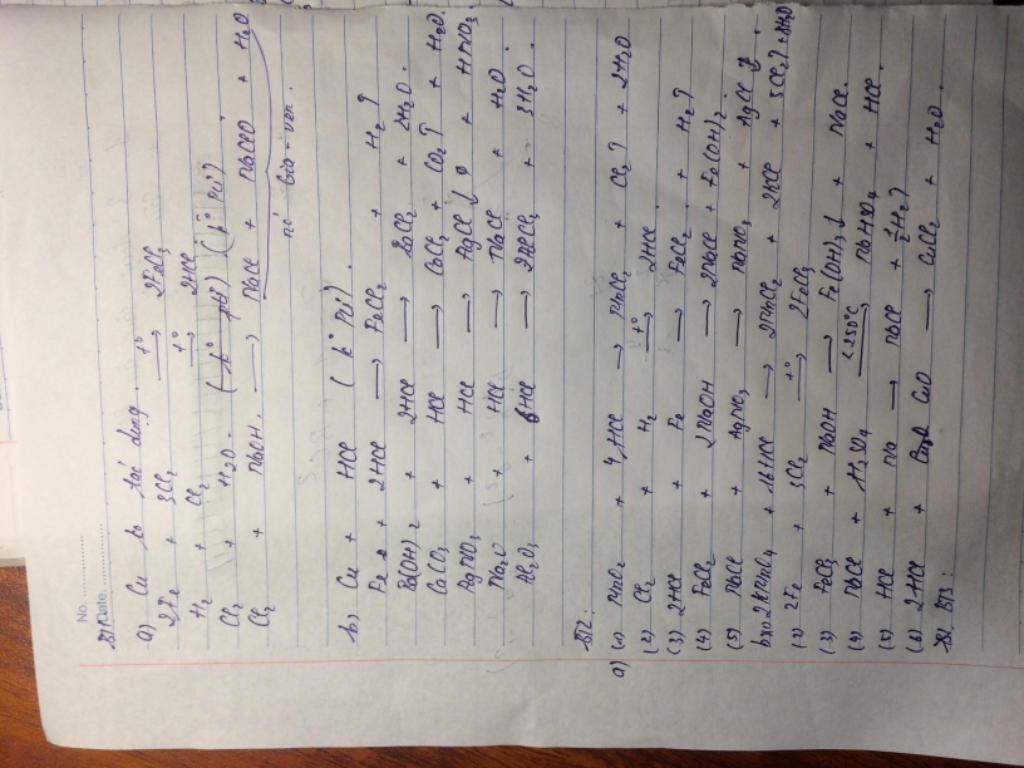 No. ............
Date. ............
BT1:
a) Cu ko tác dụng.
2Fe + 3Cl2 —t°→ 2FeCl3
H2 + Cl2 —t°→ 2HCl
Cl2 + H2O. (k° Pứ)
Cl2 + NaOH. → NaCl + NaClO + H2O
nc' Gia-ven.
b) Cu + HCl (k° Pứ).
Fe + 2HCl → FeCl2 + H2↑
Ba(OH)2 + 2HCl → BaCl2 + 2H2O.
CaCO3 + HCl → CaCl2 + CO2↑ + H2O.
AgNO3 + HCl → AgCl↓ + HNO3.
Na2O + HCl → NaCl + H2O.
Al2O3 + 6HCl → 2AlCl3 + 3H2O.
BT2:
a) (1) MnO2 + 4HCl → MnCl2 + Cl2↑ + 2H2O
(2) Cl2 + H2 —t°→ 2HCl
(3) 2HCl + Fe → FeCl2 + H2↑
(4) FeCl2 + 2NaOH → 2NaCl + Fe(OH)2.
(5) NaCl + AgNO3 → NaNO3 + AgCl↓.
b) (1) 2KMnO4 + 16HCl → 2MnCl2 + 2KCl + 5Cl2↑ + 8H2O
(2) 2Fe + 3Cl2 —t°→ 2FeCl3
(3) FeCl3 + NaOH → Fe(OH)3↓ + NaCl.
(4) NaCl + H2SO4 —<250°C→ NaHSO4 + HCl
(5) HCl + Na → NaCl + ½H2↑
(6) 2HCl + CuO → CuCl2 + H2O.
BT3: